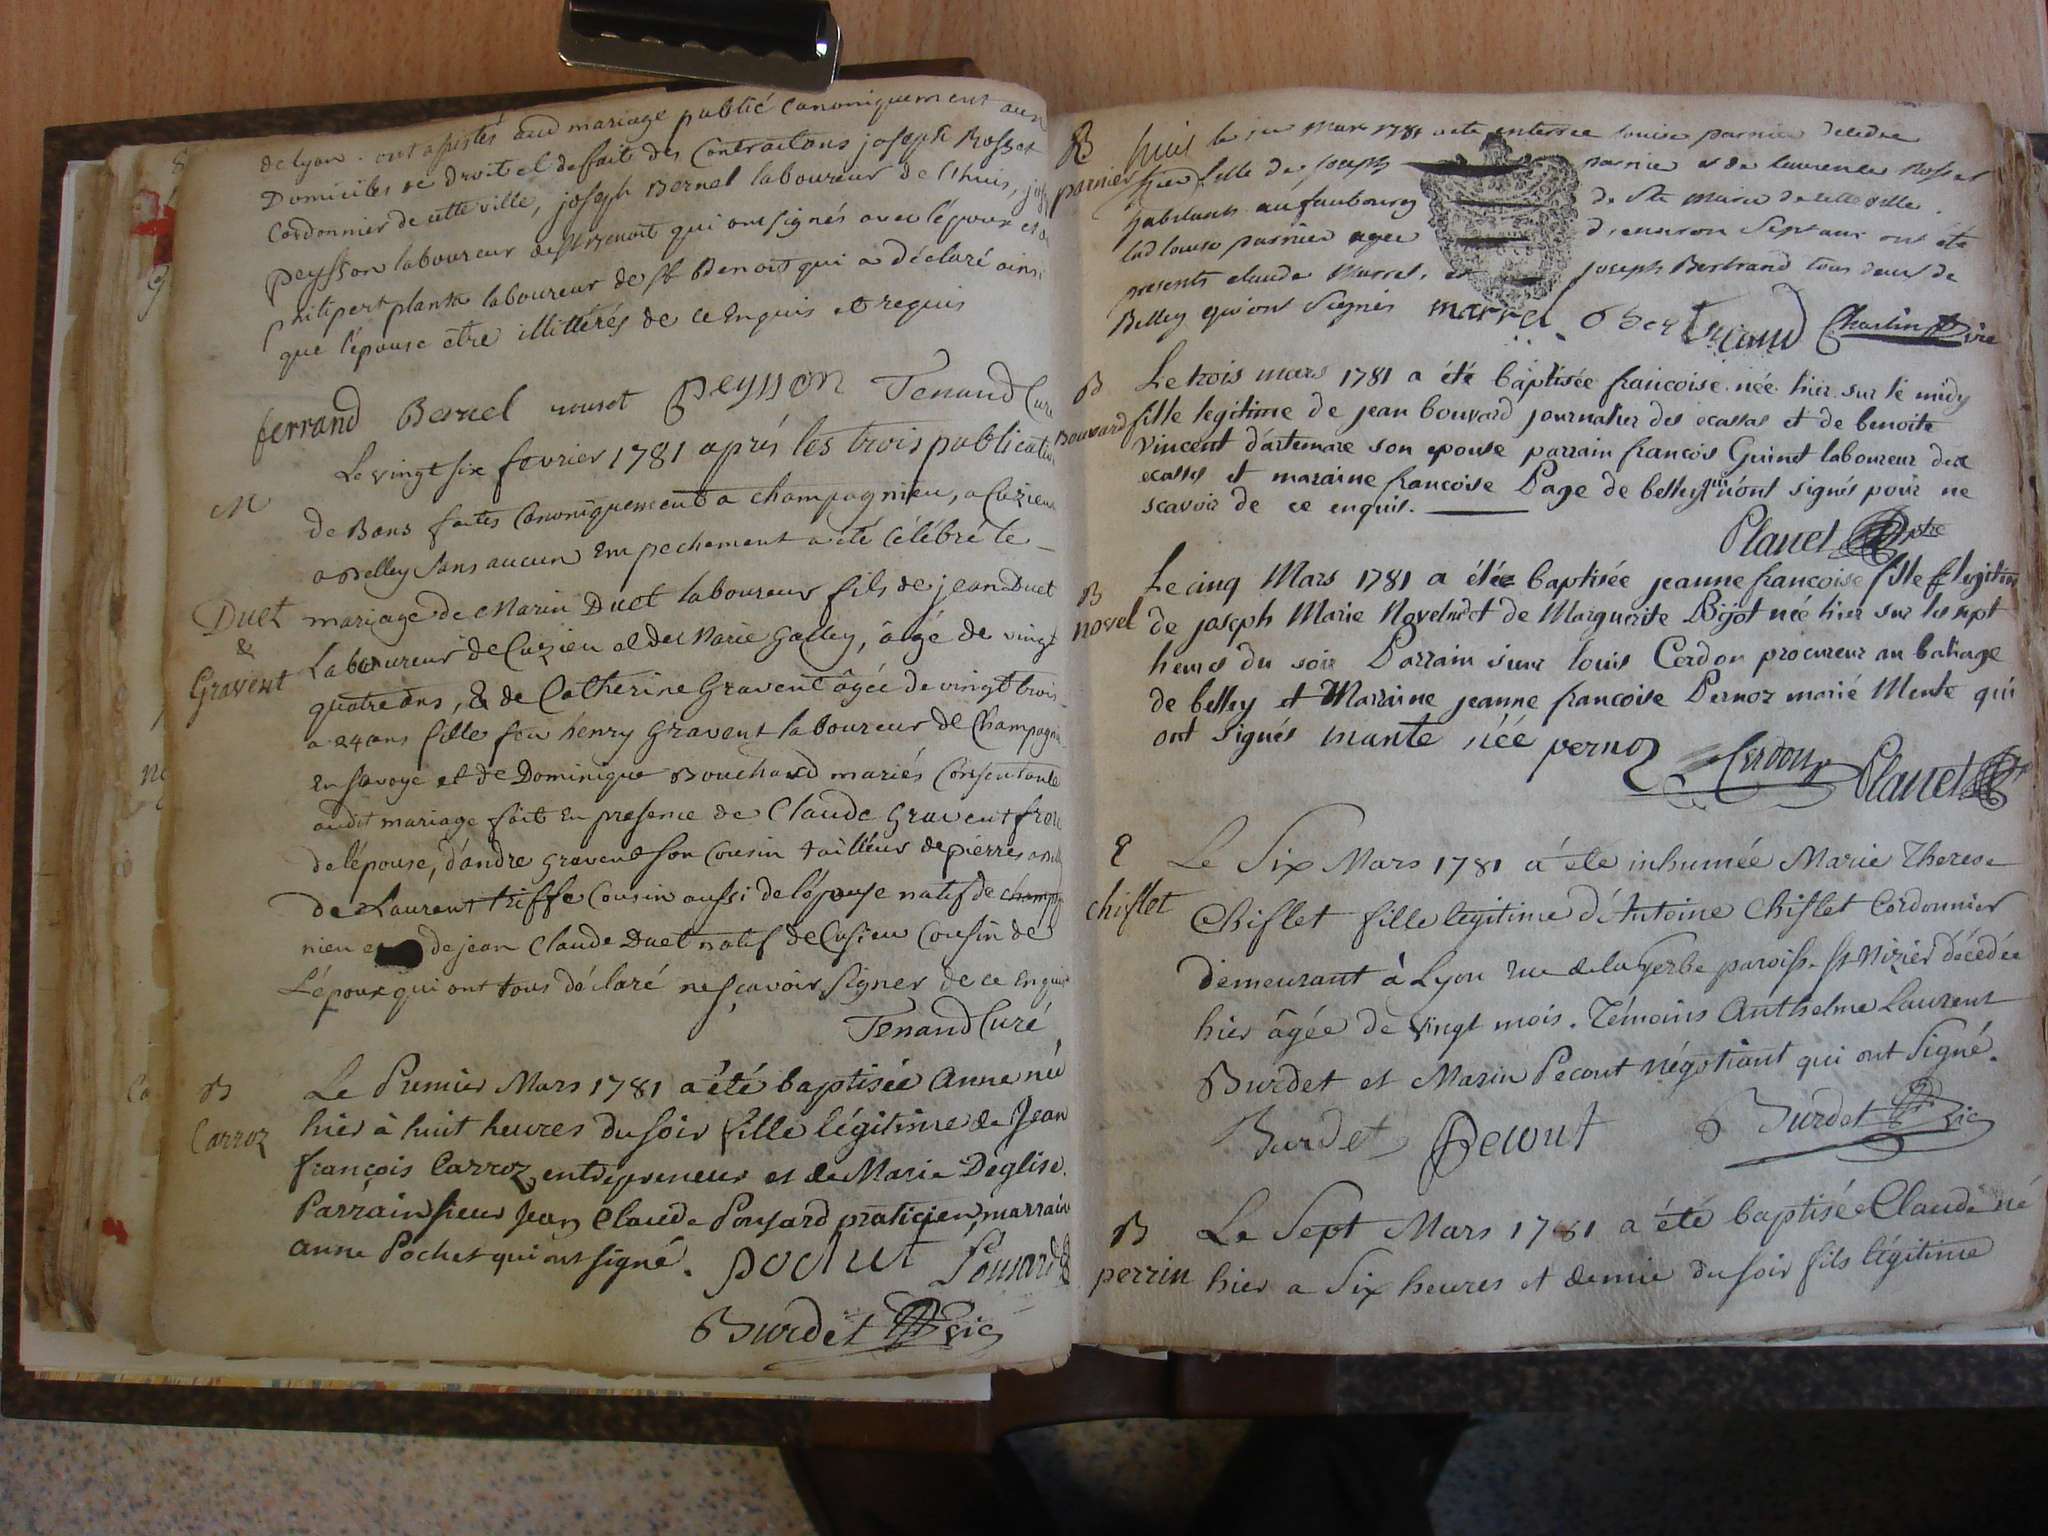 de Lyon. ont assistés aud mariage publié Canoniquement aux
Domiciles de droit et de fait des Contractans joseph Rosset
Cordonnier de cette ville, joseph Bernel laboureur de Lhuis,
peysson laboureur de St Benoit qui ont signés avec l'époux et
philipert plantin laboureur de St Benoit qui a déclaré ainsi
que l'épouse être illitérés de ce Enquis et requis
ferrand Bernel rouset peysson Tenand Curé
M
Le vingt six fevrier 1781 après les trois publications
de Bans faites Canoniquement a champagnieu, a Cuzieu
a Belley sans aucun Empechement a été célébré le
Duet
&
Gravent
mariage de Marin Duet laboureur fils de jean Duet
Laboureur de Cuzieu et de Marie Galley, âgé de vingt
quatre ans, & de Catherine Gravent âgée de vingt trois
a 24 ans fille feu henry Gravent laboureur de Champagnieu
En savoye et de Dominique Bouchard mariés Consentante
audit mariage fait En presence de Claude Gravent frere
de l'épouse, d'andre gravent son Cousin tailleur de pierres a
de Laurent triffe Cousin aussi de l'épouse natif de champag
nieu et de jean Claude Duet natif de Cusieu Cousin de
L'époux qui ont tous déclaré ne sçavoir signer de ce Enquis
Tenand Curé
B
Carroz
Le Premier Mars 1781 a été baptisée Anne née
hier à huit heures du soir fille légitime de Jean
françois Carroz entrepreneur et de Marie Deglise.
Parrain sieur Jean Claude Ponsard praticien, marraine
anne Pochet qui ont signé. pochet Ponsard
Burdet Vic
parnier
le 1er Mars 1781 a été enterrée louise parnier decedée
hier fille de joseph parnier et de laurence Rosset
habitants au faubourg de Ste Marie de cette ville.
lad louise parnier agée d'environ sept ans ont été
presents claude Marrel, et joseph Bertrand tous deux de
Belley qui ont signés marrel bertrand Charlin
B
Bouvard
Le trois mars 1781 a été baptisée francoise née hier sur le midy
fille legitime de jean bouvard journalier des ecassas et de benoite
vincent d'artemare son epouse parrain francois Guinet laboureur des
ecasses et maraine francoise Page de belley qui n'ont signés pour ne
scavoir de ce enquis.
Planet
B
novel
Le cinq Mars 1781 a été baptisée jeanne francoise fille legitime
de joseph Marie Novel et de Marguerite Bijot née hier sur les sept
heures du soir Parrain sieur louis Cerdon procureur au bailiage
de belley et Marraine jeanne francoise Pernoz marié Mente qui
ont signés mante née pernoz Cerdon Planet
chiflet
Le Six Mars 1781 a été inhumée Marie Therese
Chiflet fille legitime d'Antoine Chiflet Cordonnier
demeurant à Lyon rue de la Gerbe paroisse St Nizier décédée
hier âgée de vingt mois. Témoins Anthelme Laurent
Burdet et Marin Pecout négotiant qui ont signé.
Burdet Pecout Burdet Vic
B
perrin
Le Sept Mars 1781 a été baptisée Claude né
hier a Six heures et demie du soir fils légitime